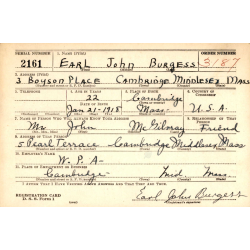 SERIAL NUMBER 1. NAME (Print) ORDER NUMBER
2161 EARL John BURGESS 3187
2. ADDRESS (Print)
3 Boyson PLACE Cambridge Middlesex Mass
3. TELEPHONE 4. AGE IN YEARS 5. PLACE OF BIRTH 6. COUNTRY OF CITIZENSHIP
22 Cambridge
DATE OF BIRTH
Jan 21-1918 Mass. U.S.A.
7. NAME OF PERSON WHO WILL ALWAYS KNOW YOUR ADDRESS 8. RELATIONSHIP OF THAT PERSON
Mr. John McGilvray Friend
9. ADDRESS OF THAT PERSON
5 Pearl Terrace Cambridge Middlesex Mass
10. EMPLOYER'S NAME
W.P.A-
11. PLACE OF EMPLOYMENT OR BUSINESS
Cambridge- Mid Mass.
I AFFIRM THAT I HAVE VERIFIED ABOVE ANSWERS AND THAT THEY ARE TRUE.
REGISTRATION CARD
D.S.S. Form 1 Earl John Burgess